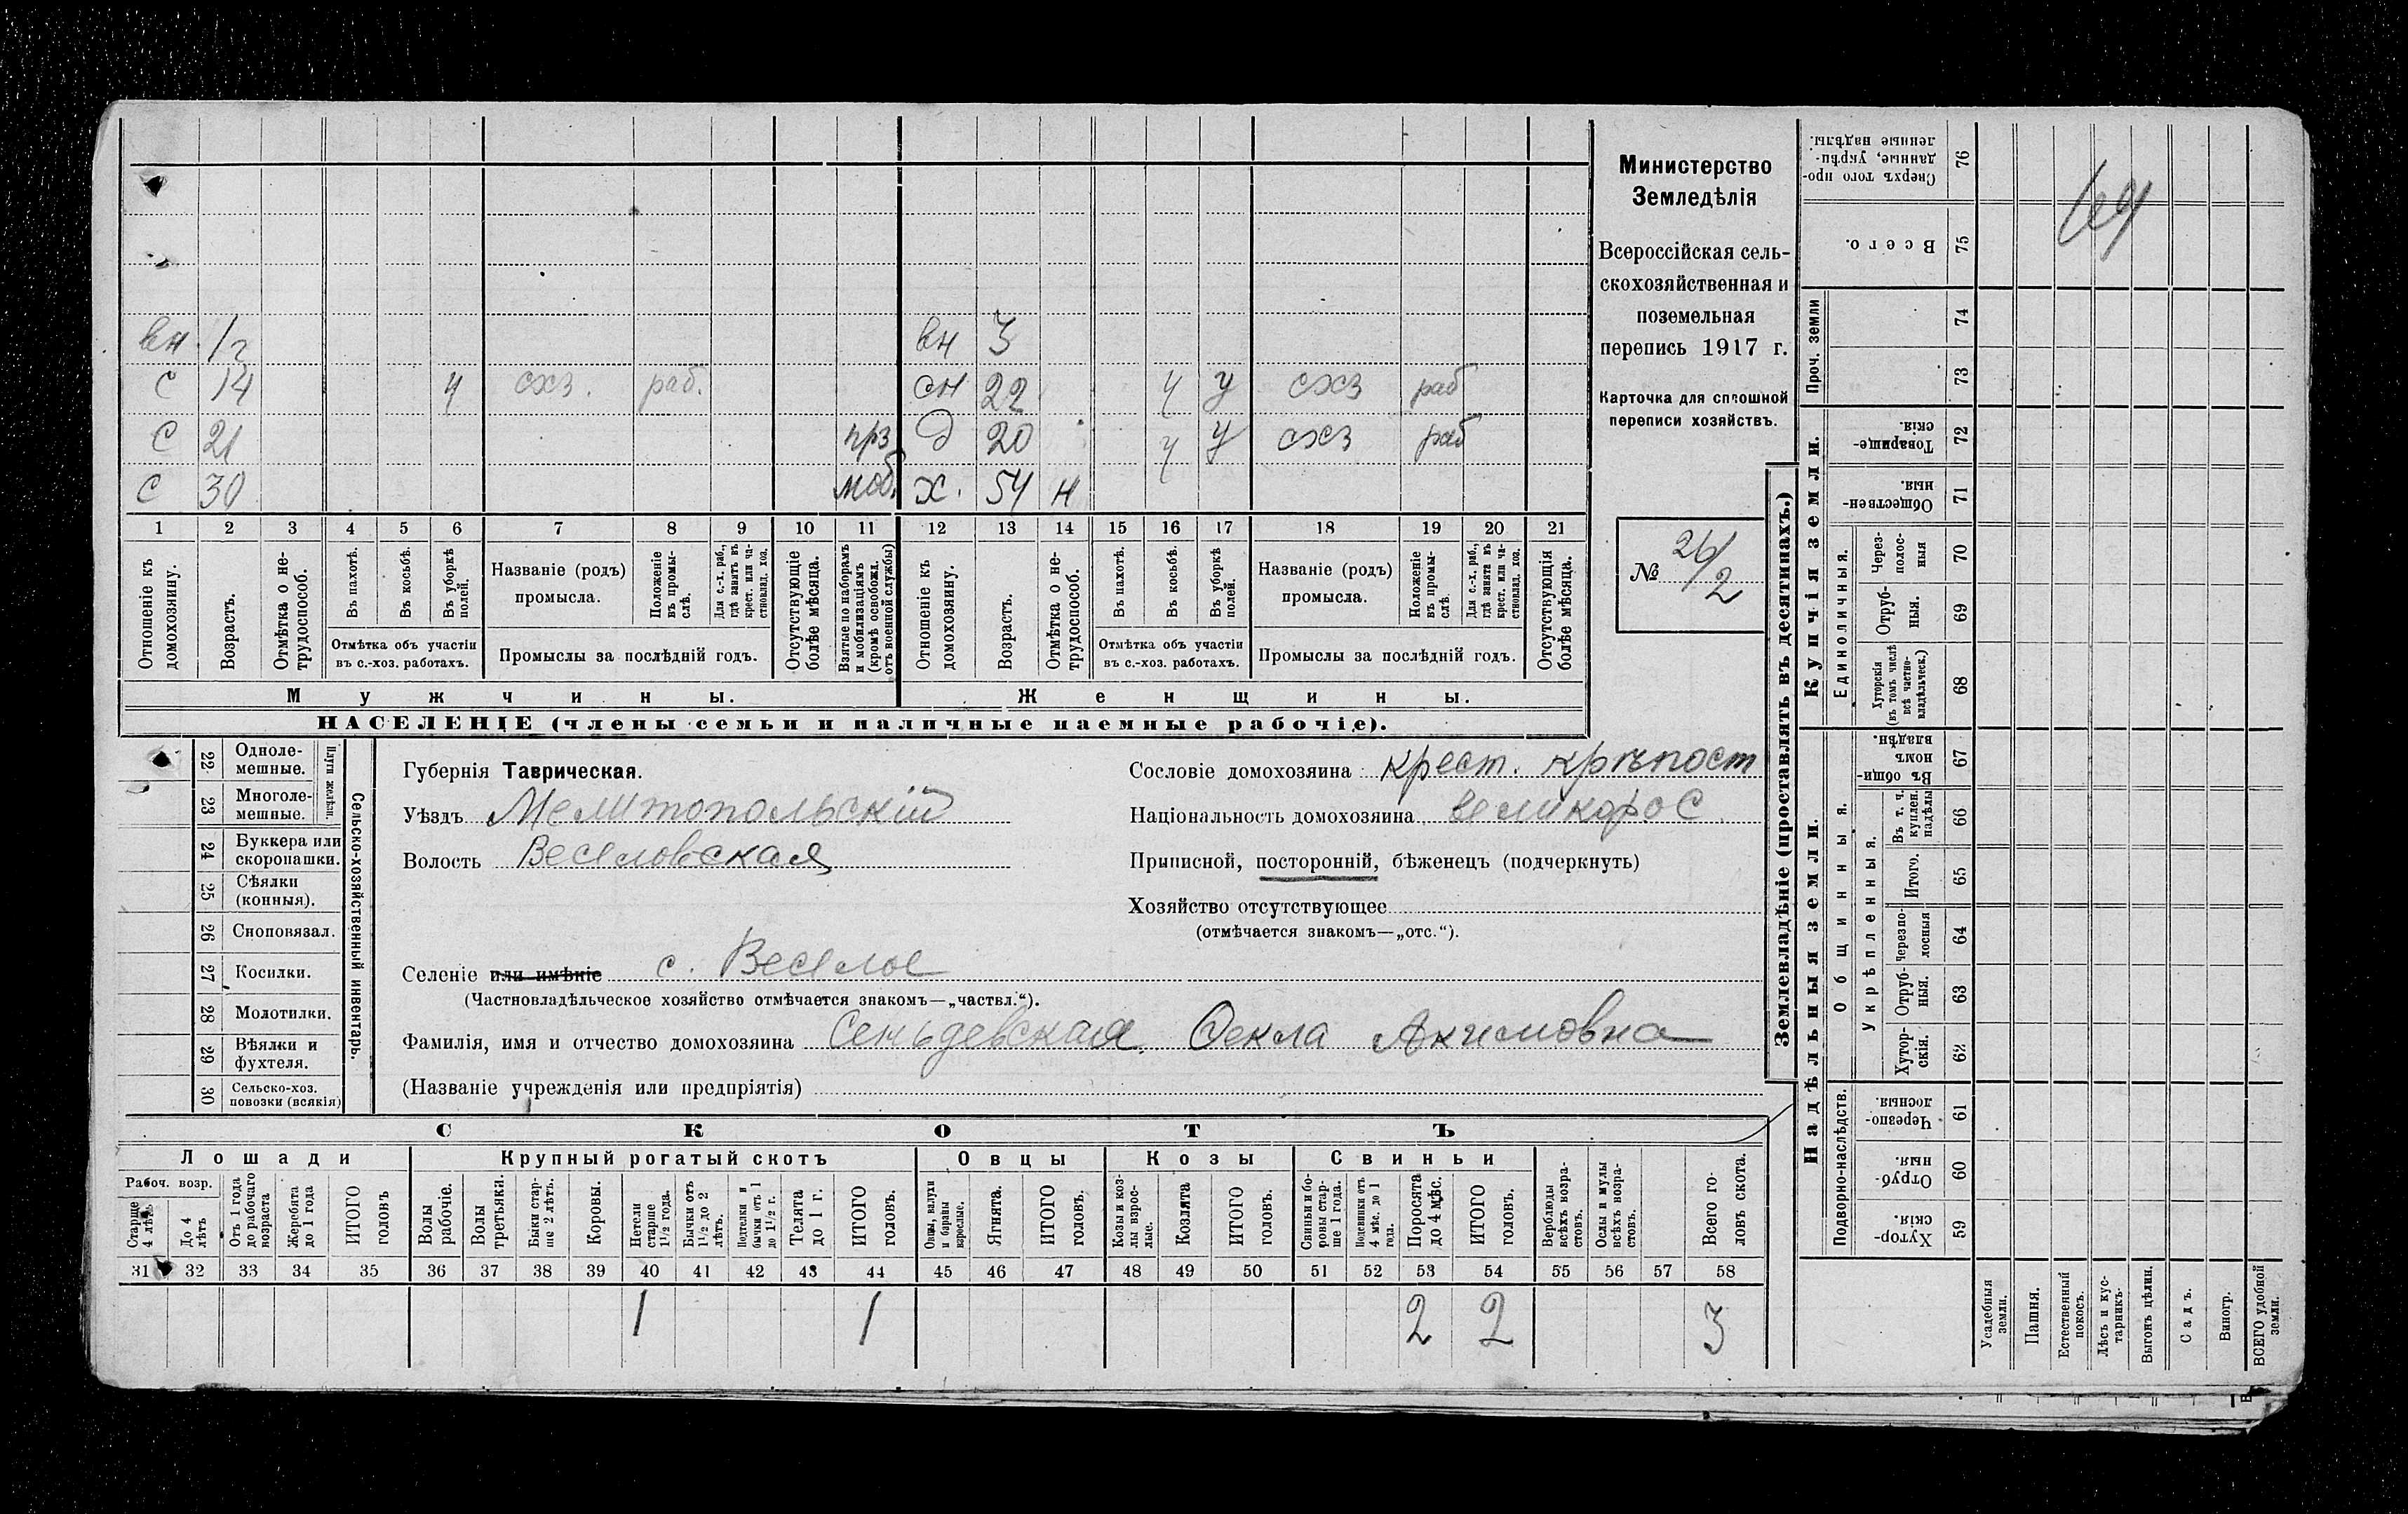 вн 1 г вн 3
с 14 ч схз. раб. сн 22 ч у схз раб
с 21 прз д 20 ч у схз раб
с 30 моб. х. 54 н
1 2 3 4 5 6 7 8 9 10 11 12 13 14 15 16 17 18 19 20 21
Отношеніе къ домохозяину.
Возрастъ.
Отмѣтка о нетрудоспособ.
Въ пахотѣ.
Въ косьбѣ.
Въ уборкѣ полей.
Отмѣтка объ участіи
въ с.-хоз. работахъ.
Названіе (родъ)
промысла.
Положеніе въ промыслѣ.
Для с.-х. раб., гдѣ занятъ въ крест. или частновлад. хоз.
Промыслы за послѣдній годъ.
Отсутствующіе болѣе мѣсяца.
Взятые по наборамъ и мобилизаціямъ (кромѣ освобожд. отъ военной службы)
Отношеніе къ домохозяину.
Возрастъ.
Отмѣтка о нетрудоспособ.
Въ пахотѣ.
Въ косьбѣ.
Въ уборкѣ полей.
Отмѣтка объ участіи
въ с.-хоз. работахъ.
Названіе (родъ)
промысла.
Положеніе въ промыслѣ.
Для с.-х. раб., гдѣ занята въ крест. или частновлад. хоз.
Промыслы за послѣдній годъ.
Отсутствующія болѣе мѣсяца.
Мужчины. Женщины.
НАСЕЛЕНІЕ (члены семьи и наличные наемные рабочіе).
Министерство
Земледѣлія
Всероссійская сель-
скохозяйственная и
поземельная
перепись 1917 г.
Карточка для сплошной
переписи хозяйствъ.
№ 26/2
22 Одноле-
мешные.
23 Многоле-
мешные.
Плуги желѣзн.
24 Буккера или
скоропашки.
25 Сѣялки
(конныя).
26 Сноповязал.
27 Косилки.
28 Молотилки.
29 Вѣялки и
фухтеля.
30 Сельско-хоз.
повозки (всякія)
Сельско-хозяйственный инвентарь.
Губернія Таврическая.
Уѣздъ Мелитопольскій
Волость Веселовская
Селеніе или имѣніе с. Веселое
(Частновладѣльческое хозяйство отмѣчается знакомъ—„частвл.“).
Фамилія, имя и отчество домохозяина Ѳекла Акимовна
(Названіе учрежденія или предпріятія)
Сословіе домохозяина крест. крѣпост
Національность домохозяина великорос
Приписной, посторонній, бѣженецъ (подчеркнуть)
Хозяйство отсутствующее
(отмѣчается знакомъ—„отс.“).
СКОТЪ
Лошади Крупный рогатый скотъ Овцы Козы Свиньи
Рабоч. возр.
Старше 4 лѣтъ
До 4 лѣтъ
Отъ 1 года до рабочаго возраста
Жеребята до 1 года
ИТОГО головъ
Волы рабочіе.
Волы третьяки.
Быки старше 2 лѣтъ.
Коровы.
Нетели старше 1½ года.
Бычки отъ 1½ до 2 лѣтъ.
Подтелки и бычки отъ 1 до 1½ г.
Телята до 1 г.
ИТОГО головъ.
Овцы, валухи и бараны взрослые.
Ягнята.
ИТОГО головъ.
Козы и козлы взрослые.
Козлята
ИТОГО головъ.
Свиньи и боровы старше 1 года.
Подсвинки отъ 4 мѣс. до 1 года.
Поросята до 4 мѣс.
ИТОГО головъ.
Верблюды всѣхъ возрастовъ.
Ослы и мулы всѣхъ возрастовъ.
Всего головъ скота.
31 32 33 34 35 36 37 38 39 40 41 42 43 44 45 46 47 48 49 50 51 52 53 54 55 56 57 58
1 1 2 2 3
Землевладѣніе (проставлять въ десятинахъ.)
Сверхъ того проданные, укрѣпленные надѣлы. 76
Всего. 75
Проч. земли 74
73
Купчія земли.
Товарищескія. 72
Общественныя. 71
Единоличныя.
Черезполосныя 70
Отрубныя. 69
Хуторскія (въ томъ числѣ всѣ частновладѣльческ.) 68
Надѣльныя земли.
Общинныя.
Въ общинномъ владѣн. 67
Укрѣпленныя.
Въ т. ч. куплен. надѣлы 66
Итого. 65
Черезполосныя 64
Отрубныя. 63
Хуторскія. 62
Подворно-наслѣдств.
Черезполосныя. 61
Отрубныя. 60
Хуторскія. 59
Усадебныя земли.
Пашня.
Естественный покосъ.
Лѣсъ и кустарникъ.
Выгонъ цѣлин.
Садъ.
Виногр.
ВСЕГО удобной земли.